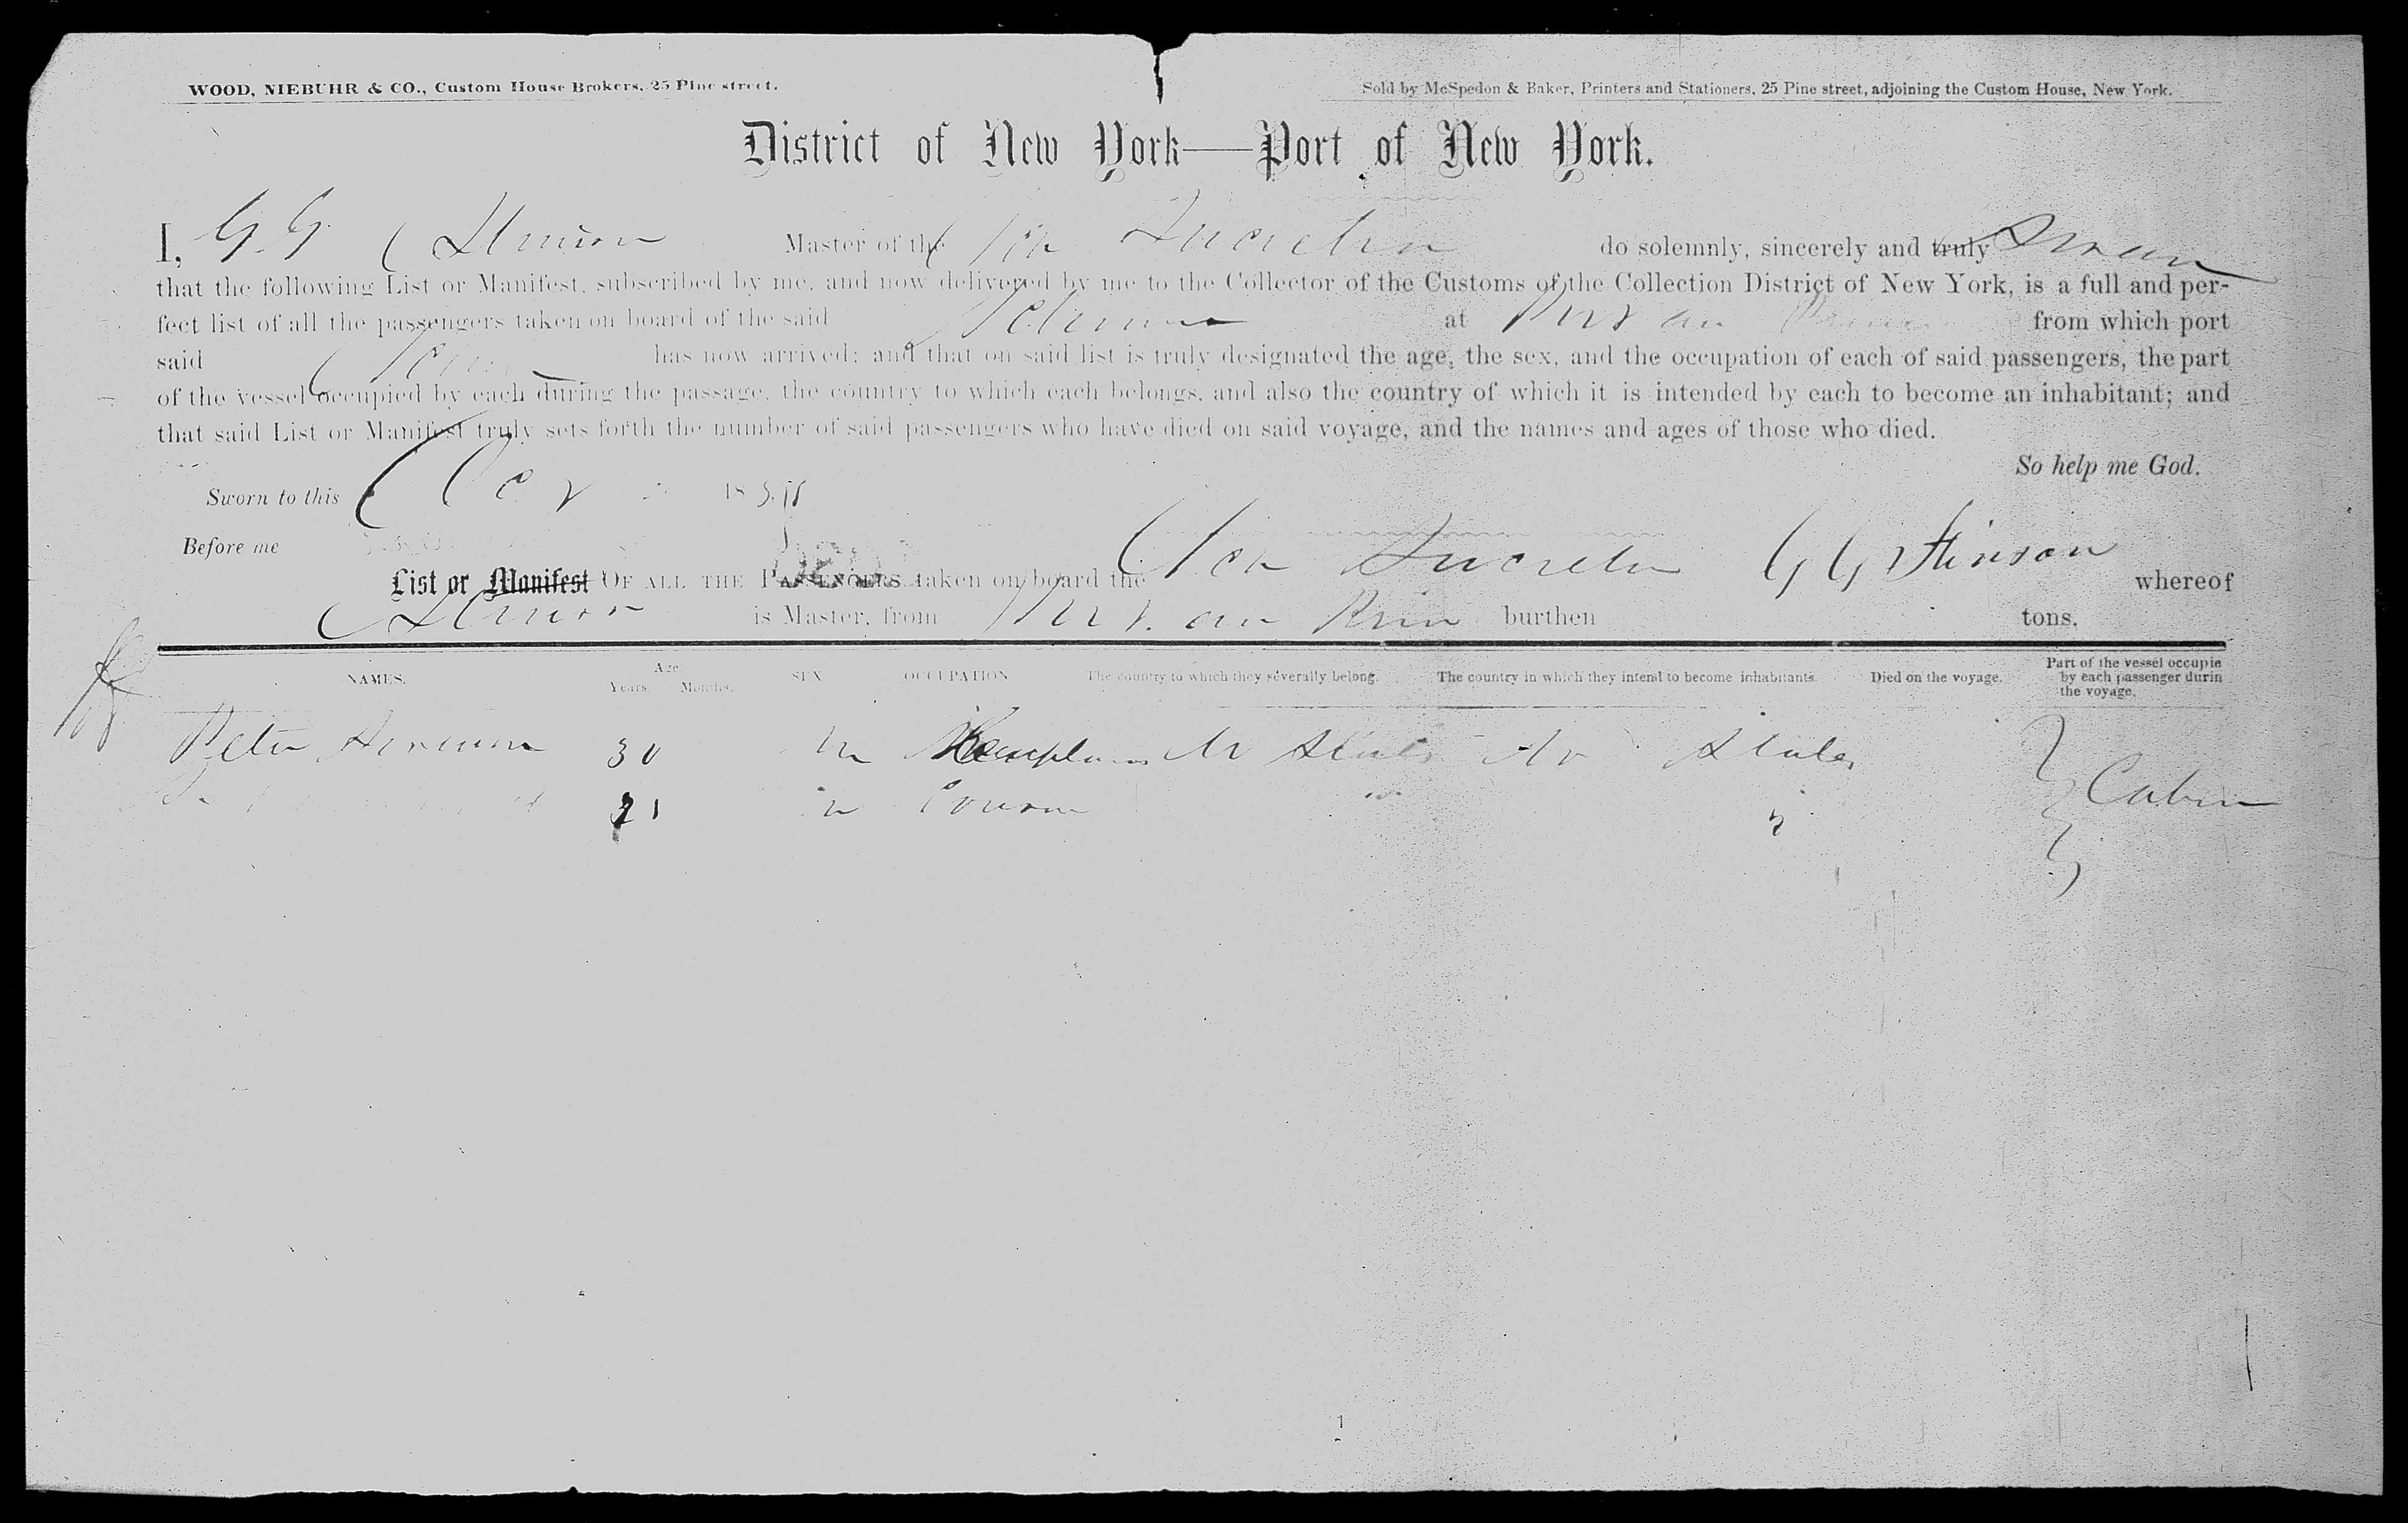 WOOD, NIEBUHR & CO., Custom House Brokers, 25 Pine street.
Sold by McSpedon & Baker, Printers and Stationers, 25 Pine street, adjoining the Custom House, New York.
District of New York—Port of New York.
I, G. G. Stinson Master of the Sch Lucretia do solemnly, sincerely and truly Swear
that the following List or Manifest, subscribed by me, and now delivered by me to the Collector of the Customs of the Collection District of New York, is a full and per-
fect list of all the passengers taken on board of the said at Port au Prince from which port
said has now arrived; and that on said list is truly designated the age, the sex, and the occupation of each of said passengers, the part
of the vessel occupied by each during the passage, the country to which each belongs, and also the country of which it is intended by each to become an inhabitant; and
that said List or Manifest truly sets forth the number of said passengers who have died on said voyage, and the names and ages of those who died.
So help me God.
Sworn to this 18
Before me
List or Manifest OF ALL THE PASSENGERS taken on board the Sch Lucretia G G Stinson whereof
Stinson is Master, from Port au Prin burthen tons.
NAMES. Age Years. Months. SEX OCCUPATION The country to which they severally belong. The country in which they intend to become inhabitants. Died on the voyage. Part of the vessel occupie by each passenger durin the voyage.
Peter 30 m States States
21 m Cabin